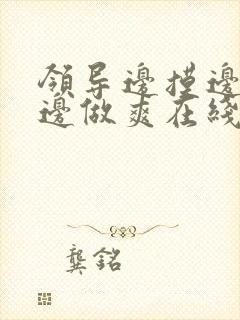 領导邊摸邊
邊做爽在綫
龔銘